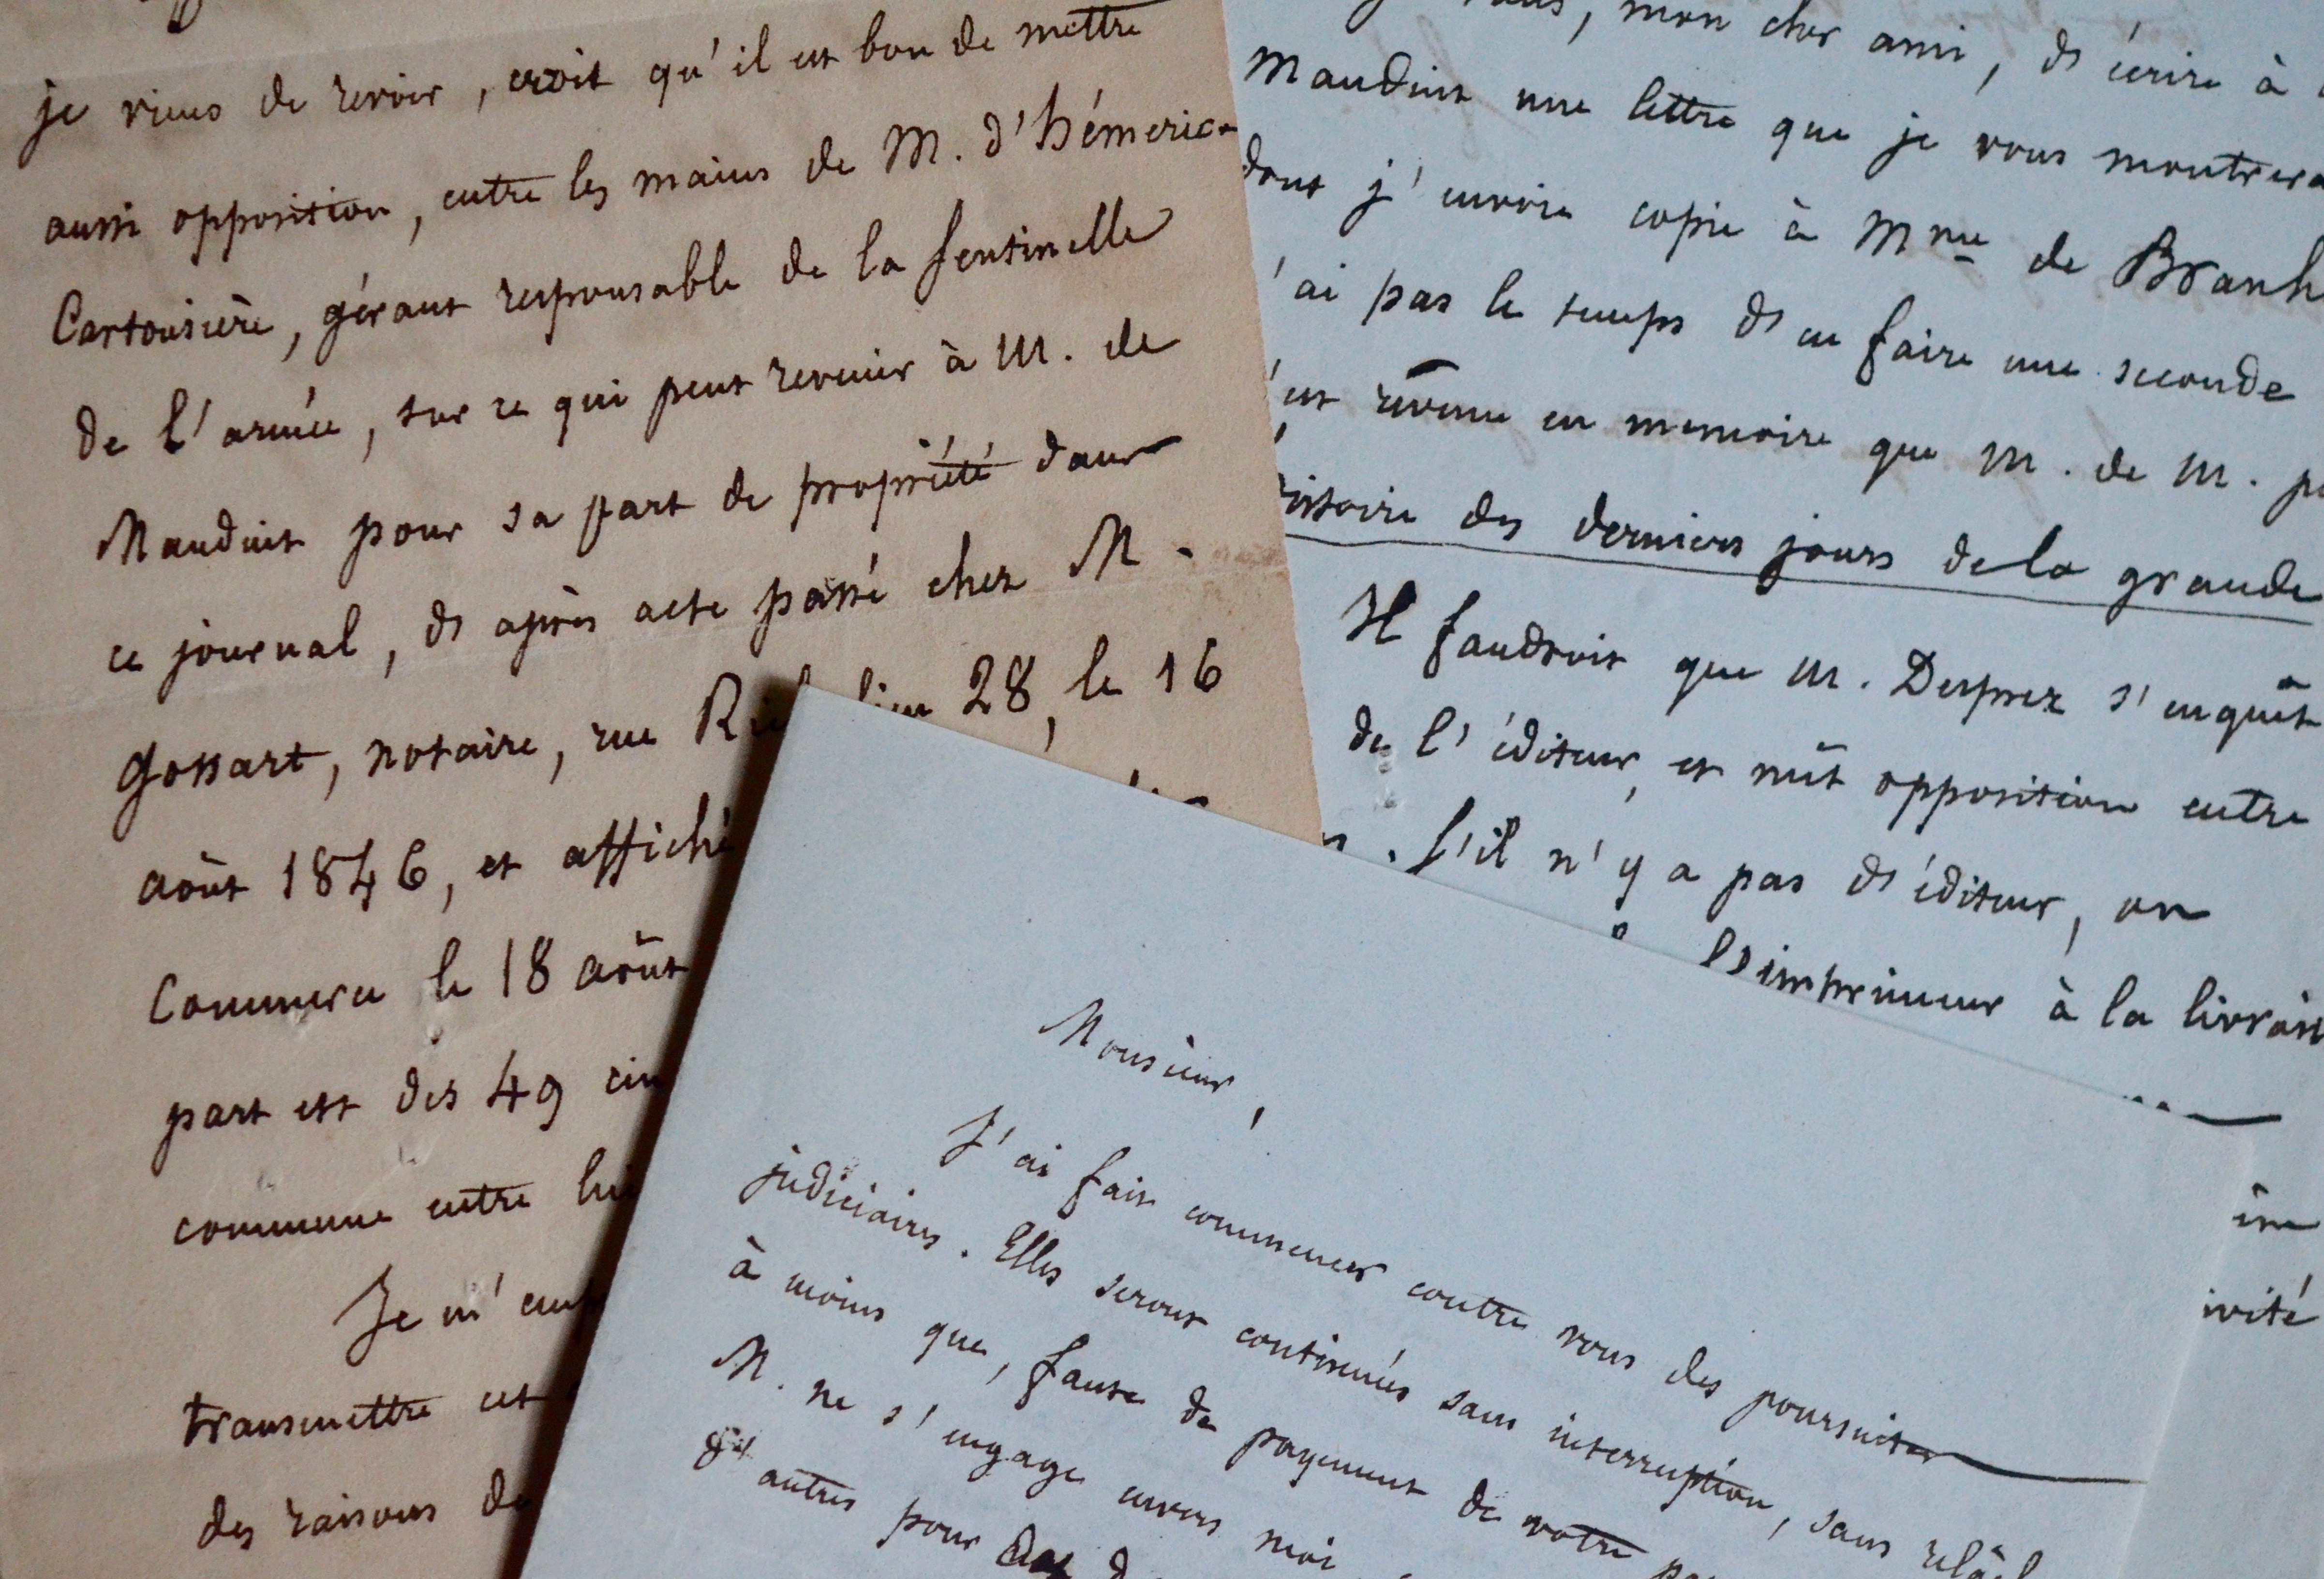 je viens de revoir, croit qu'il est bon de mettre
aussi opposition, entre les mains de M. d'hémeric
Cartousière, gérant responsable de la Sentinelle
de l'armée, sur ce qui peut revenir à M. de
Mauduit pour sa part de propriété dans
ce journal, d'après acte passé chez M.
Gossart, notaire, rue Ri lieu 28, le 16
août 1846, et affiché
Commerce le 18 août
part est des 49 cin
commune entre lui
Je m'emp
transmettre cet
des raisons de
, mon cher ami, d'écrire à
Mauduit une lettre que je vous montrera
dont j'envoie copie à Mme de Branh
'ai pas le temps d'en faire une seconde
'est revenu en memoire que M. de M. p
istoire des derniers jours de la grande
Il faudroit que M. Desprez s'enquît
de l'éditeur, et mît opposition entre
. S'il n'y a pas d'éditeur, on
l'imprimeur à la livrais
ivité
Monsieur,
J'ai fait commencer contre vous des poursuites
judiciaires. Elles seront continuées sans interruption, sans relâch
à moins que, faute de payement de votre pa
M. ne s'engage envers moi
autres pour